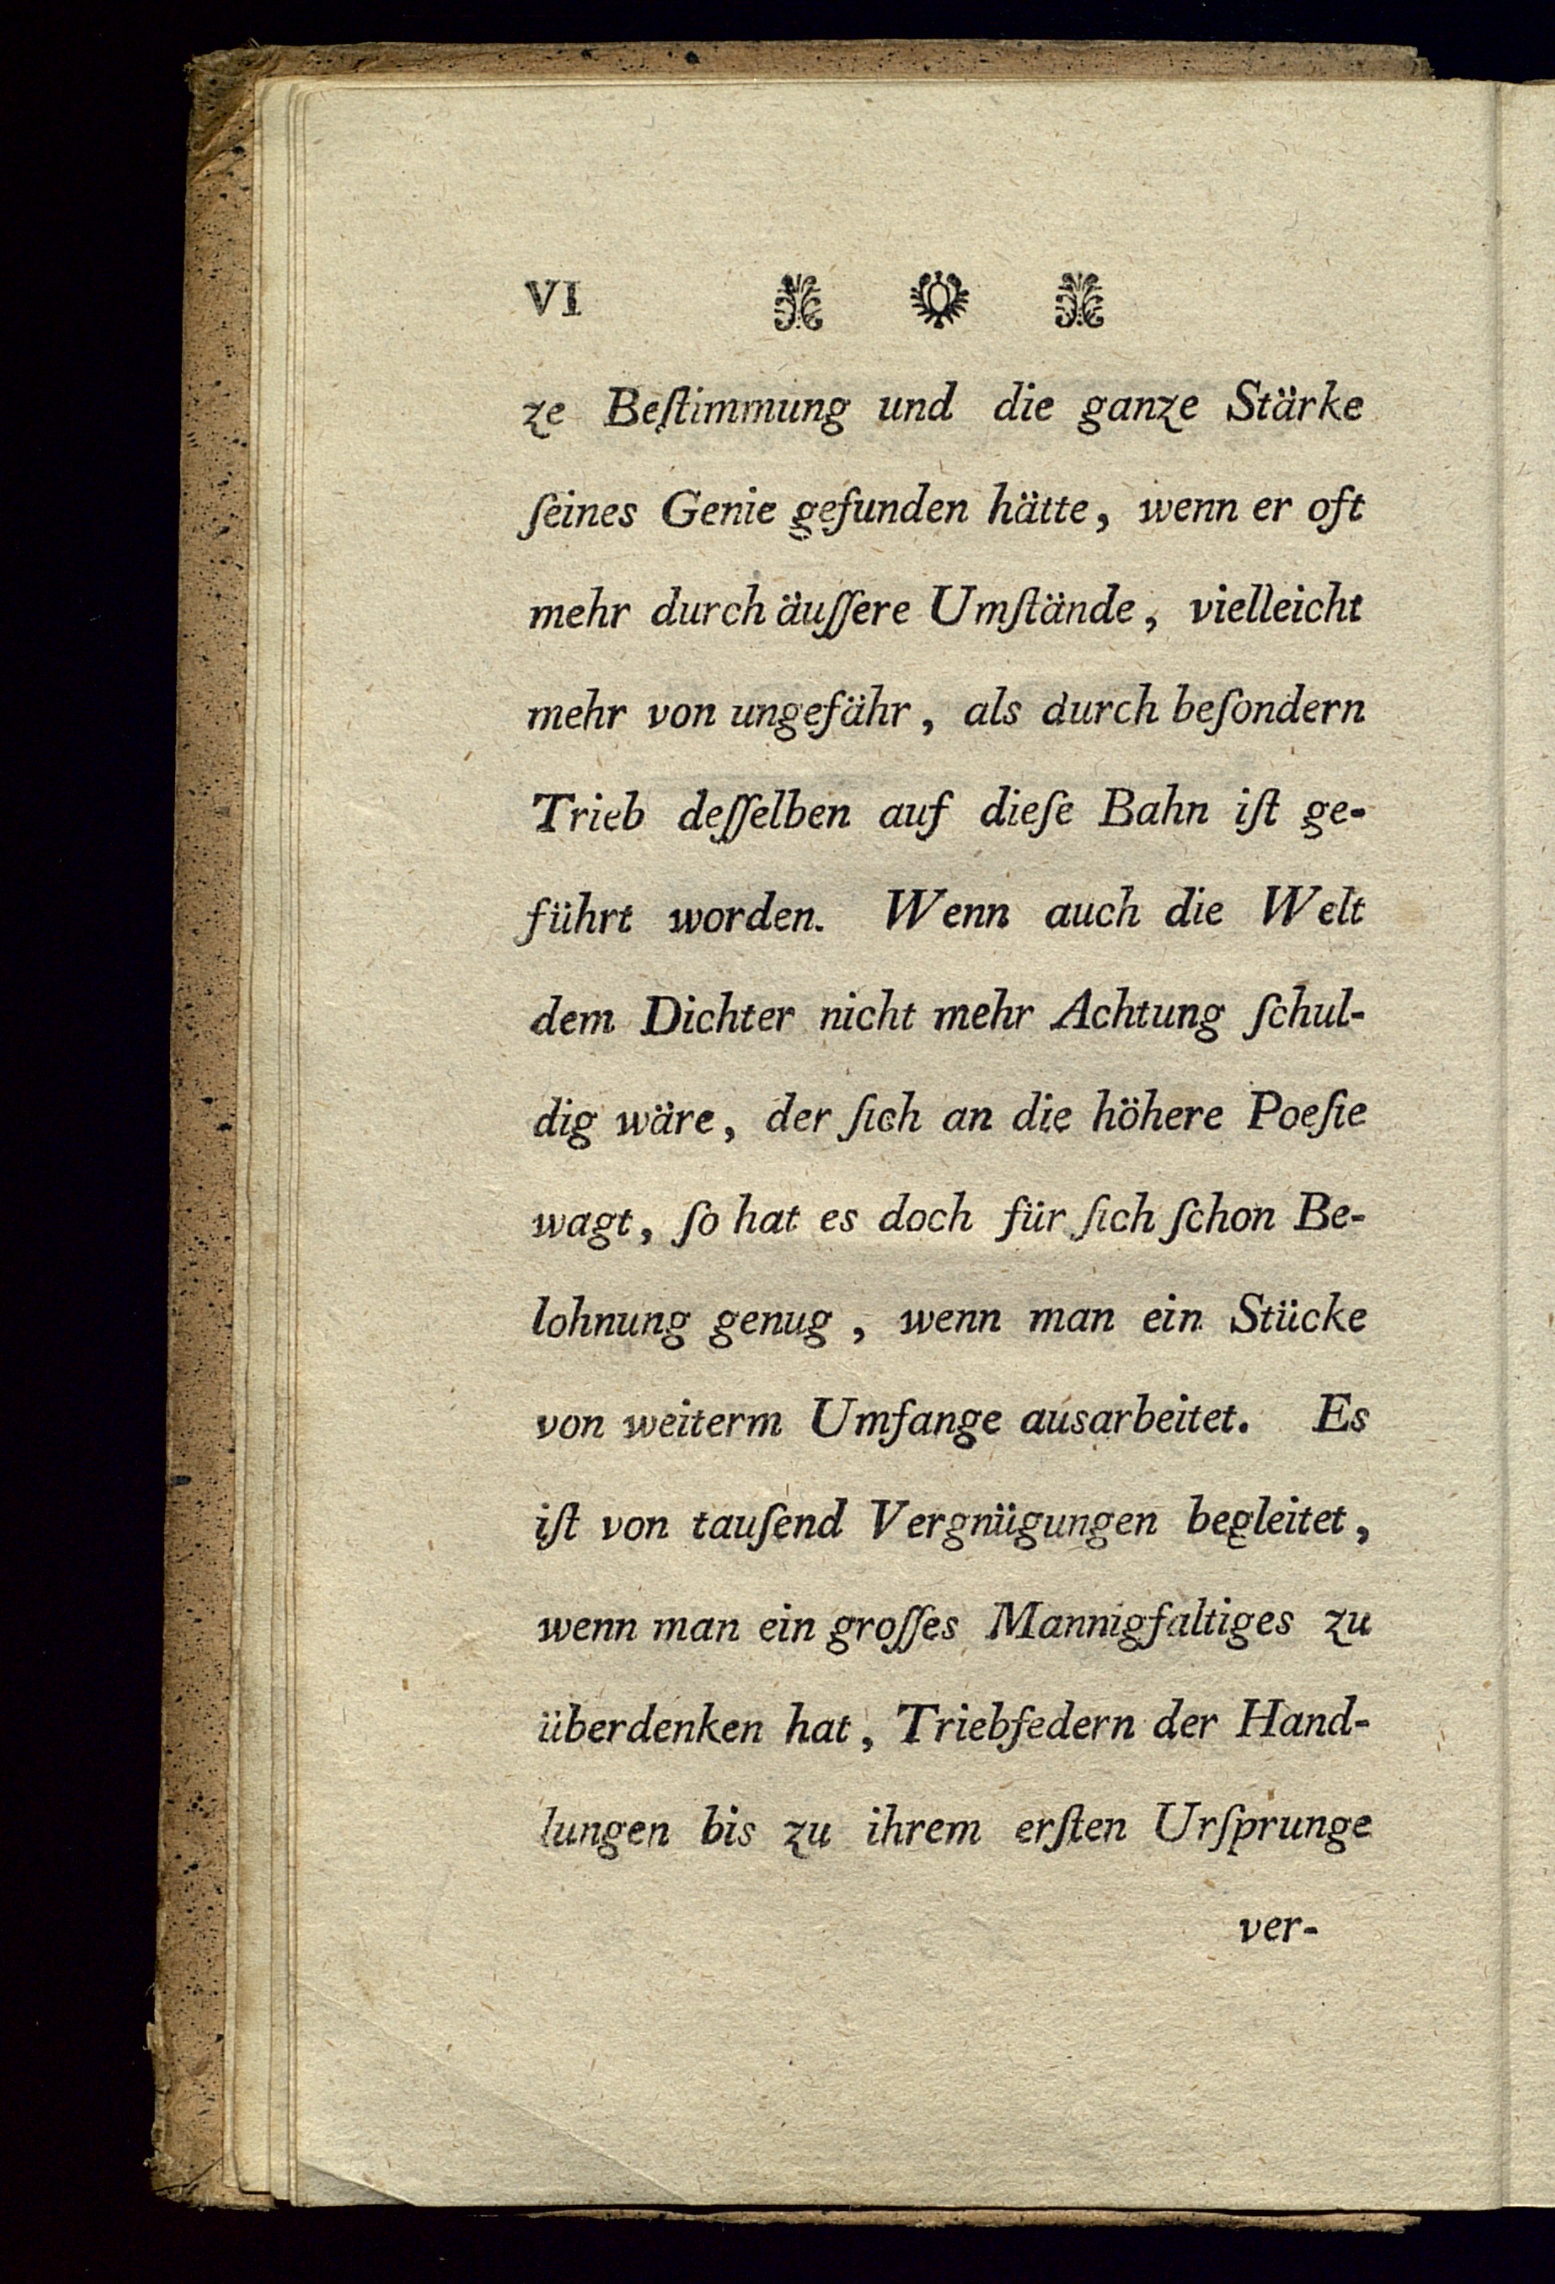 VI
ze Beſtimmung und die ganze Stärke
ſeines Genie gefunden hätte, wenn er oft
mehr durch äuſſere Umſtände, vielleicht
mehr von ungefähr, als durch beſondern
Trieb deſſelben auf dieſe Bahn iſt ge-
führt worden. Wenn auch die Welt
dem Dichter nicht mehr Achtung ſchul-
dig wäre, der ſich an die höhere Poeſie
wagt, ſo hat es doch für ſich ſchon Be-
lohnung genug, wenn man ein Stücke
von weiterm Umfange ausarbeitet. Es
iſt von tauſend Vergnügungen begleitet,
wenn man ein groſſes Mannigfaltiges zu
überdenken hat, Triebfedern der Hand-
lungen bis zu ihrem erſten Urſprunge
ver-